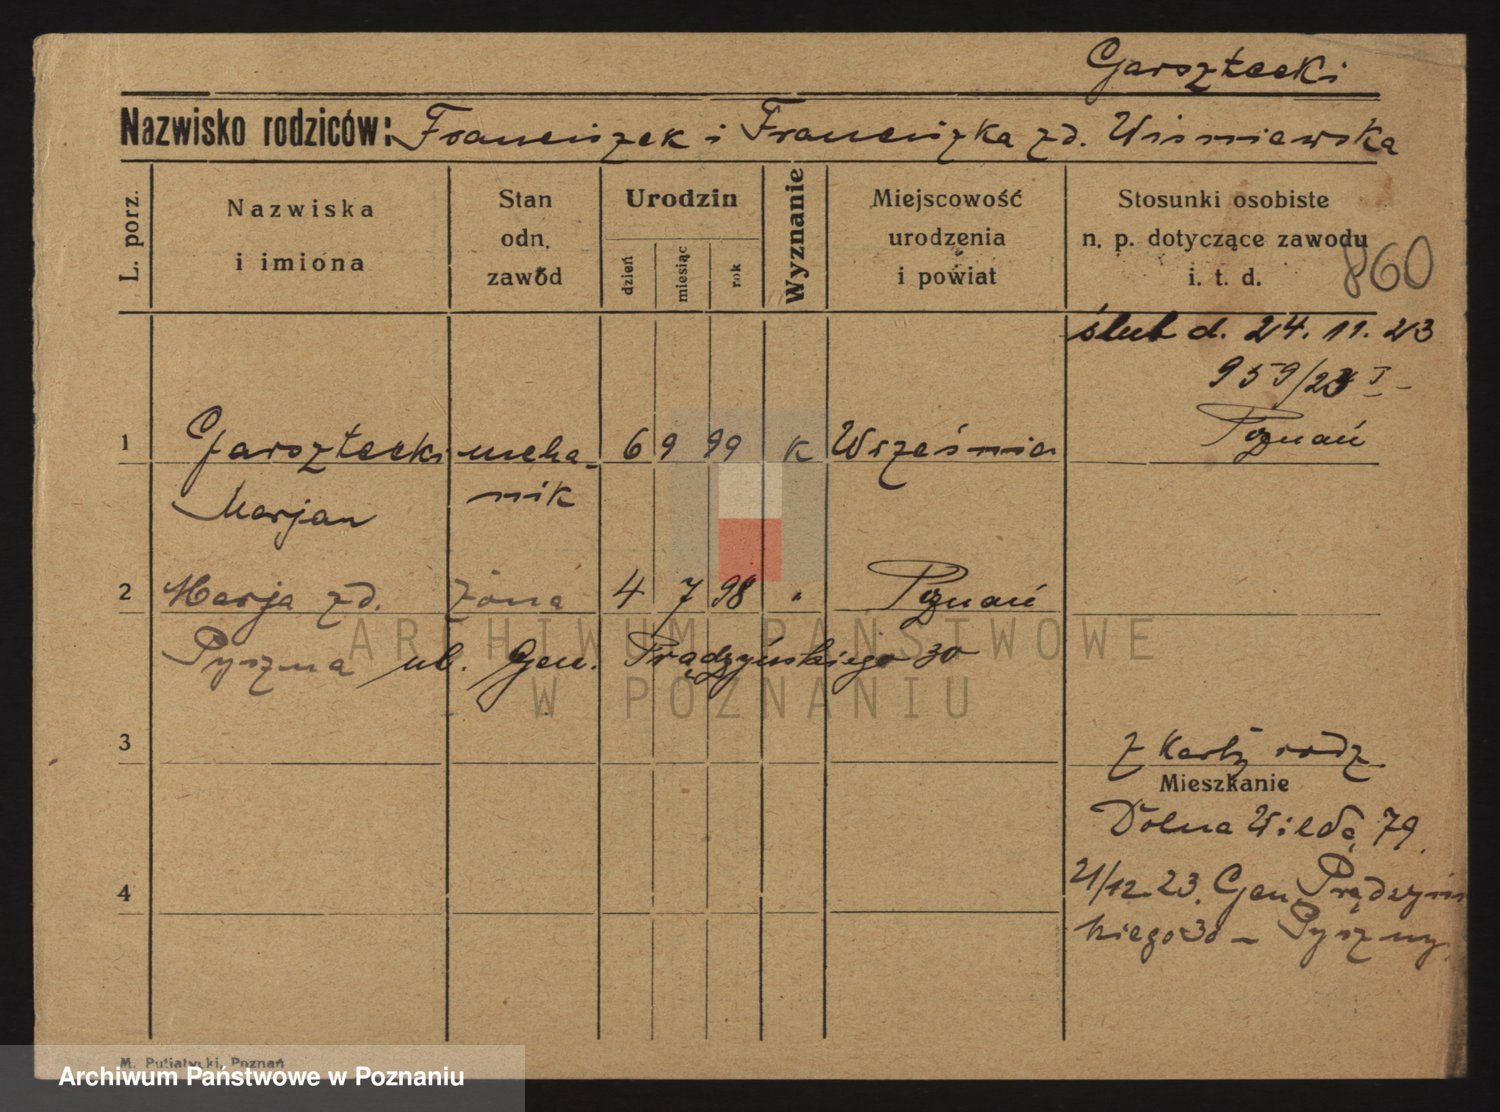 Garsztecki
Nazwisko rodziców: Franciszek i Franciszka zd. Wiśniewska
L. porz.
Nazwiska
i imiona
Stan
odn.
zawód
Urodzin
dzień
miesiąc
rok
Wyznanie
Miejscowość
urodzenia
i powiat
Stosunki osobiste
n. p. dotyczące zawodu
i. t. d.
860
ślub d. 24. 11. 23
959/23 I -
Poznań
1 Garsztecki mecha- 6 9 99 k Września
Marjan nik
2 Marja zd. żona 4 7 98 " Poznań
Pyszna ul. Gen. Prądzyńskiego 30
ARCHIWUM PAŃSTWOWE
W POZNANIU
3
z karty rodz.
Mieszkanie
Dolna Wilda 79.
4
21/12.23. Gen. Prądzyńs
kiego 30 - Pyszny.
M. Putiatycki, Poznań
Archiwum Państwowe w Poznaniu